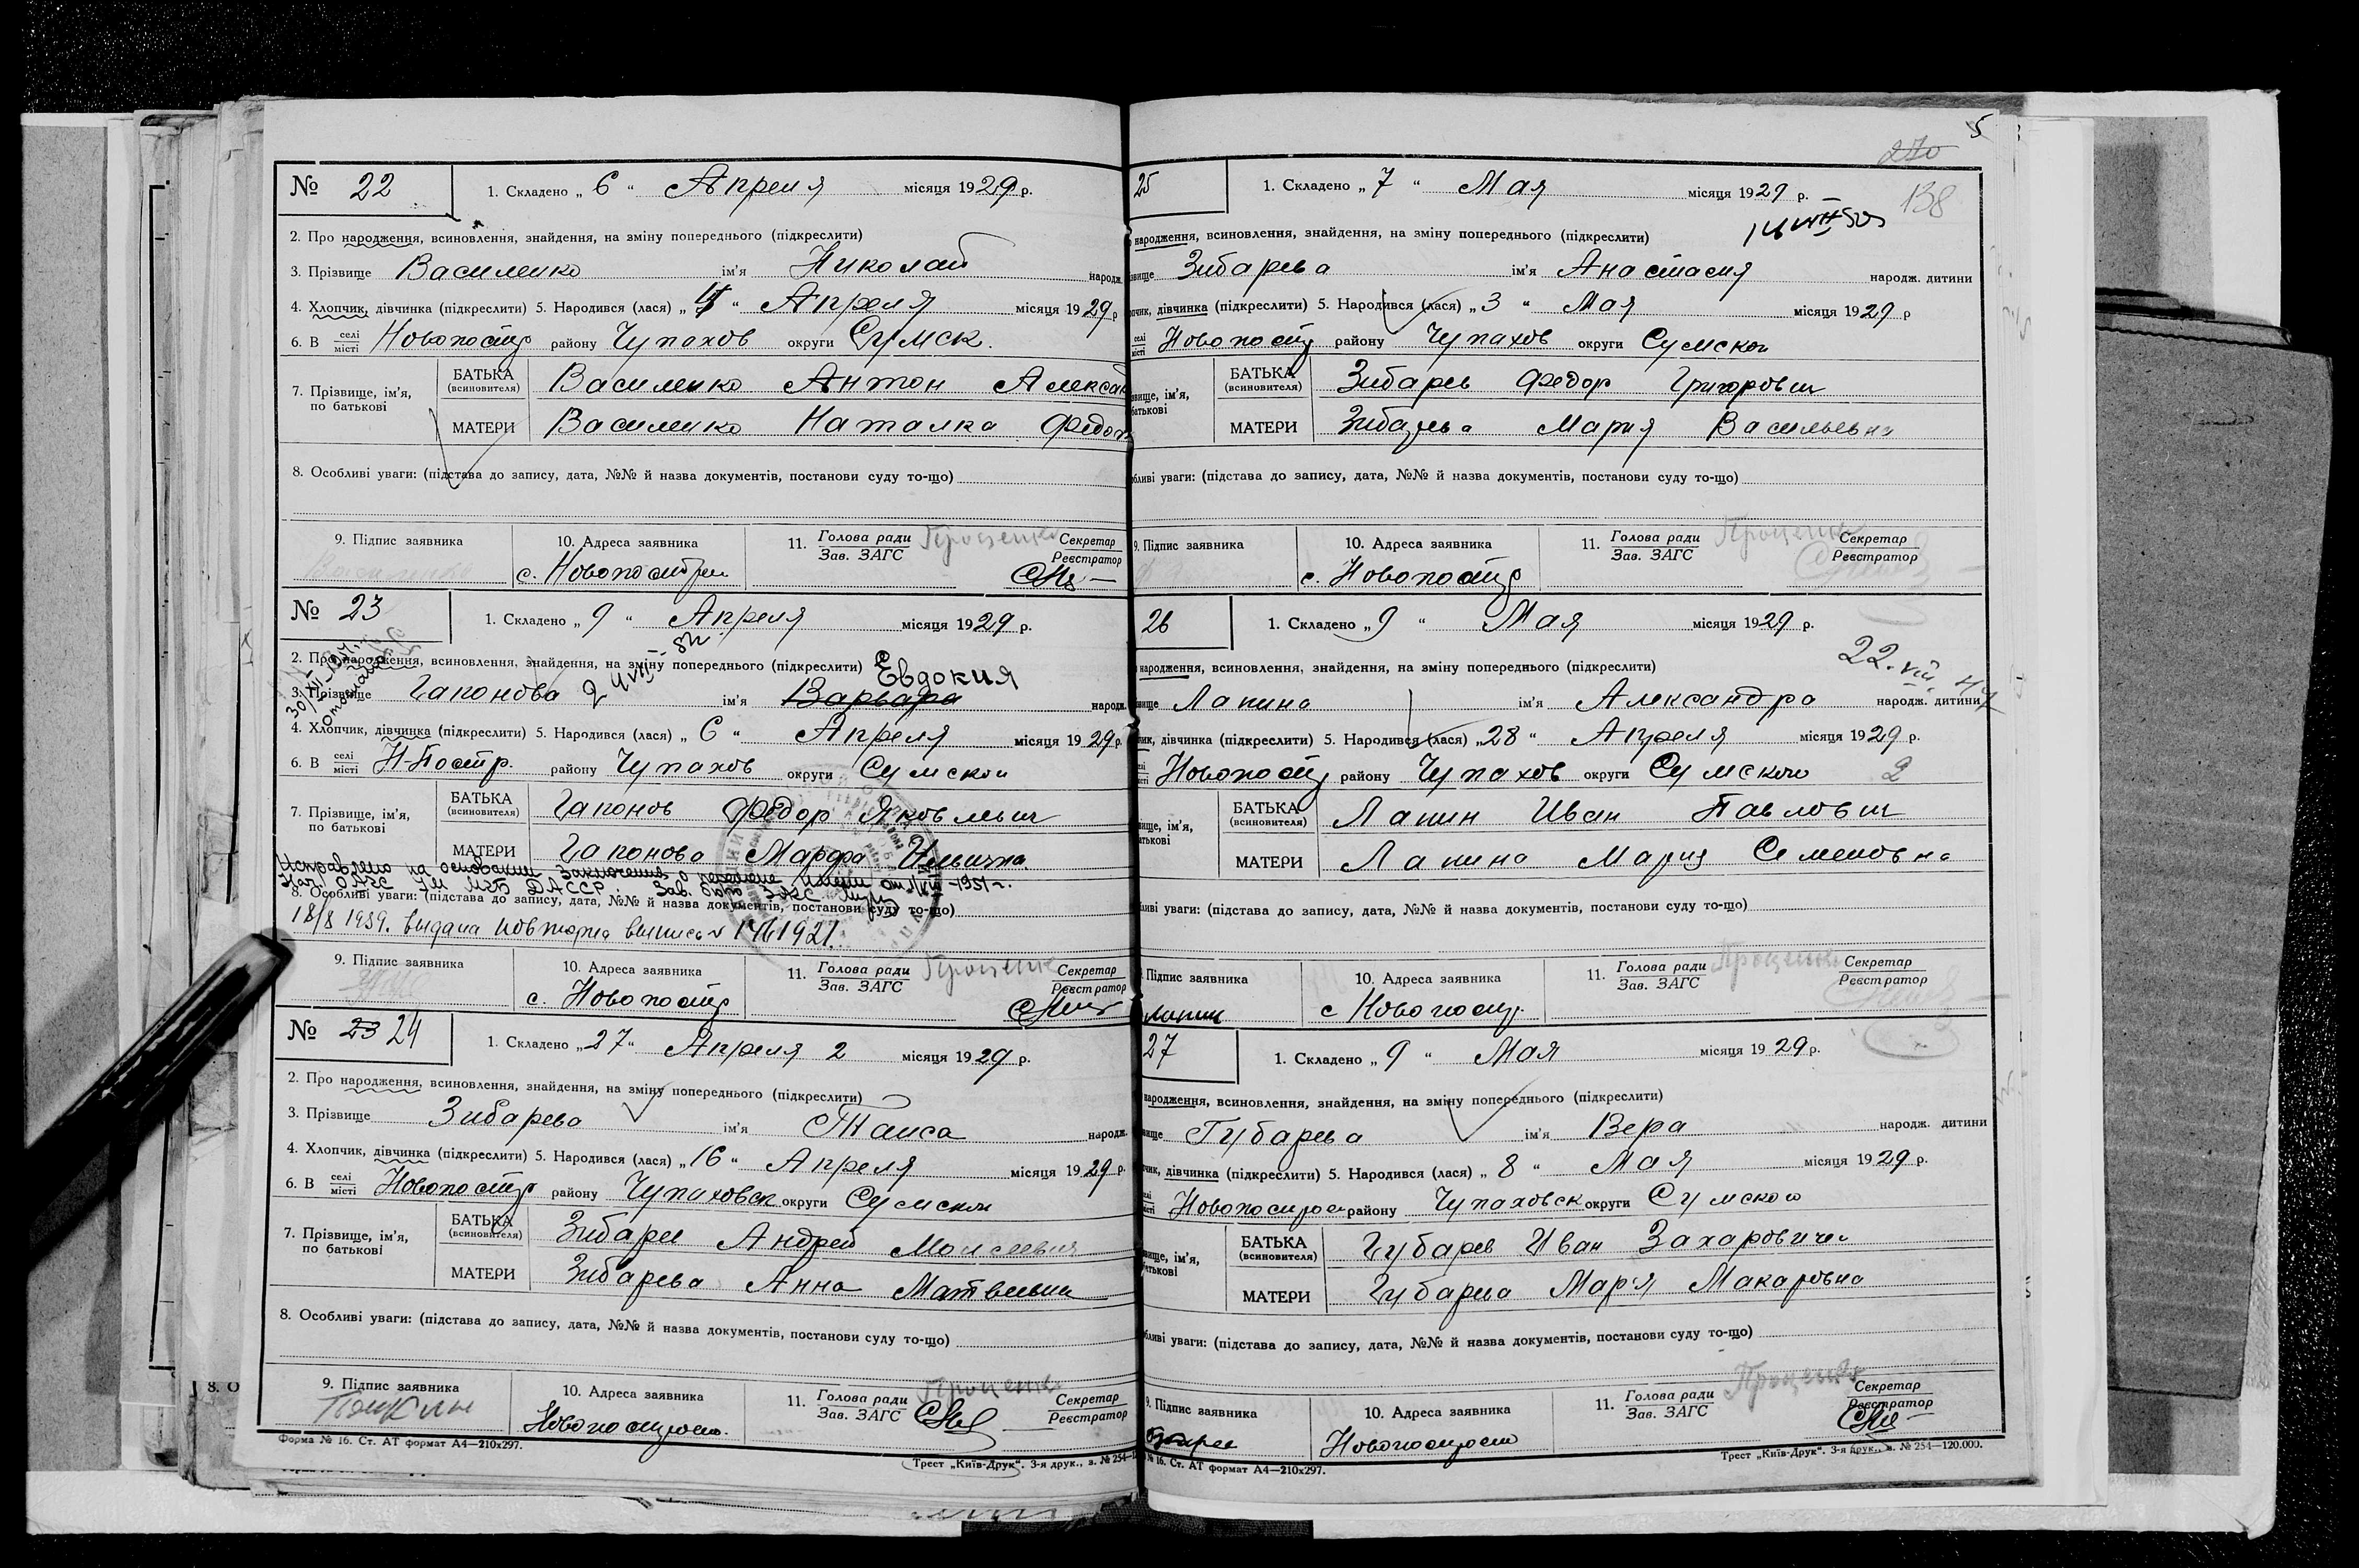 № 22
1. Складено „ 6 “ Апреля місяця 1929 р.
2. Про народження, всиновлення, знайдення, на зміну попереднього (підкреслити)
3. Прізвище Василенко ім'я Николай народж.
4. Хлопчик, дівчинка (підкреслити) 5. Народився (лася) „ 4 “ Апреля місяця 1929 р
6. В селі місті Новопостр району Чупахов округи Сумск.
7. Прізвище, ім'я, по батькові
БАТЬКА (всиновителя) Василенко Антон Александ
МАТЕРИ Василенко Наталка Федот
8. Особливі уваги: (підстава до запису, дата, №№ й назва документів, постанови суду то-що)
9. Підпис заявника
10. Адреса заявника
с. Новопостроен
11. Голова ради Зав. ЗАГС Проценко
Секретар Реєстратор
№ 23
1. Складено „ 9 “ Апреля місяця 1929 р.
2. Про народження, всиновлення, знайдення, на зміну попереднього (підкреслити) Евдокия
3. Прізвище Гапонова ім'я Варвара народж.
4. Хлопчик, дівчинка (підкреслити) 5. Народився (лася) „ 6 “ Апреля місяця 1929 р.
6. В селі місті Н-Постр. району Чупахов округи Сумской
7. Прізвище, ім'я, по батькові
БАТЬКА (всиновителя) Гапонов Федор Яковлевич
МАТЕРИ Гапонова Марфа Ильинична
Исправлено на основании Заключения о перемене имени от 1951 г.
Нач. ОАГС УМ МГБ ДАССР. Зав. бюро ЗАГС
8. Особливі уваги: (підстава до запису, дата, №№ й назва документів, постанови суду то-що)
18/8 1939. выдана повторна выпись № 1461921.
9. Підпис заявника
10. Адреса заявника
с. Новопостр
11. Голова ради Зав. ЗАГС Проценко
Секретар Реєстратор
№ 23 24
1. Складено „ 27 “ Апреля 2 місяця 1929 р.
2. Про народження, всиновлення, знайдення, на зміну попереднього (підкреслити)
3. Прізвище Зибарева ім'я Таиса народж.
4. Хлопчик, дівчинка (підкреслити) 5. Народився (лася) „ 16 “ Апреля місяця 1929 р.
6. В селі місті Новопостр району Чупаховск округи Сумской
7. Прізвище, ім'я, по батькові
БАТЬКА (всиновителя) Зибарев Андрей Моисеевич
МАТЕРИ Зибарева Анна Матвеевна
8. Особливі уваги: (підстава до запису, дата, №№ й назва документів, постанови суду то-що)
9. Підпис заявника
10. Адреса заявника
Новопостроен.
11. Голова ради Зав. ЗАГС Проценко
Секретар Реєстратор
Форма № 16. Ст. АТ формат А4—210х297.
Трест „Київ-Друк“. 3-я друк., з. № 254—
5
270
138
25
1. Складено „ 7 “ Мая місяця 1929 р.
народження, всиновлення, знайдення, на зміну попереднього (підкреслити)
звище Зибарева ім'я Анастасия народж. дитини
пчик, дівчинка (підкреслити) 5. Народився (лася) „ 3 “ Мая місяця 1929 р
селі місті Новопостр району Чупахов округи Сумской
звище, ім'я, батькові
БАТЬКА (всиновителя) Зибарев Федор Григорович
МАТЕРИ Зибарева Мария Васильевна
бливі уваги: (підстава до запису, дата, №№ й назва документів, постанови суду то-що)
9. Підпис заявника
10. Адреса заявника
с. Новопостр
11. Голова ради Зав. ЗАГС Проценко
Секретар Реєстратор
26
1. Складено „ 9 “ Мая місяця 1929 р.
народження, всиновлення, знайдення, на зміну попереднього (підкреслити)
22.VIII.
вище Лапина ім'я Александра народж. дитини
чик, дівчинка (підкреслити) 5. Народився (лася) „ 28 “ Апреля місяця 1929 р.
Новопостр району Чупахов округи Сумского 2
вище, ім'я, атькові
БАТЬКА (всиновителя) Лапин Иван Павлович
МАТЕРИ Лапина Мария Семеновна
ливі уваги: (підстава до запису, дата, №№ й назва документів, постанови суду то-що)
Підпис заявника
Лапин
10. Адреса заявника
с Новопостр.
11. Голова ради Зав. ЗАГС Проценко
Секретар Реєстратор
27
1. Складено „ 9 “ Мая місяця 1929 р.
народження, всиновлення, знайдення, на зміну попереднього (підкреслити)
вище Губарева ім'я Вера народж. дитини
чик, дівчинка (підкреслити) 5. Народився (лася) „ 8 “ Мая місяця 1929 р.
Новопострoен району Чупаховск округи Сумского
вище, ім'я, атькові
БАТЬКА (всиновителя) Губарев Иван Захарович
МАТЕРИ Губарева Мар'я Макаровна
бливі уваги: (підстава до запису, дата, №№ й назва документів, постанови суду то-що)
9. Підпис заявника
10. Адреса заявника
Новопостроен
11. Голова ради Зав. ЗАГС Проценко
Секретар Реєстратор
№ 16. Ст. АТ формат А4—210х297.
Трест „Київ-Друк“. 3-я друк., з. № 254—120.000.